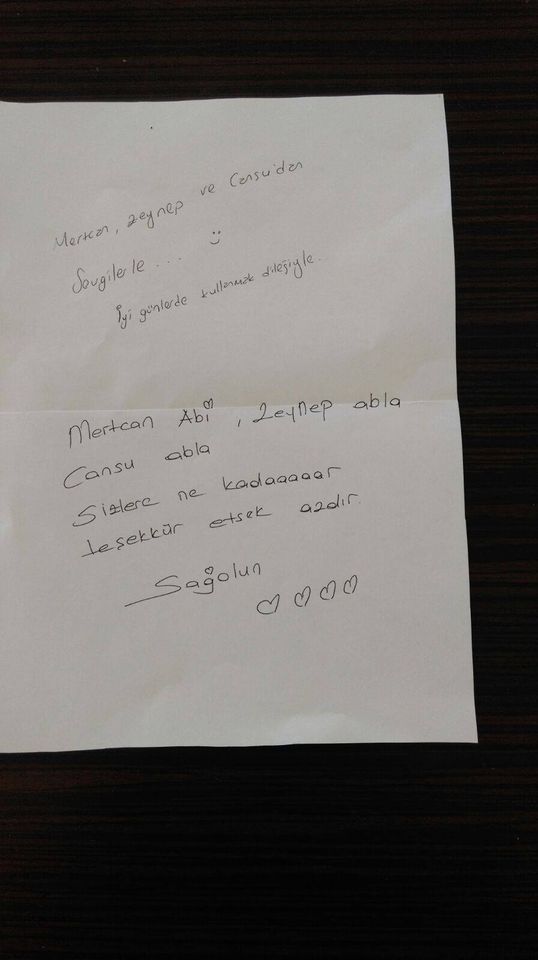 Mertcan, Zeynep ve Cansu'dan
Sevgilerle... :)
İyi günlerde kullanmak dileğiyle..
Mertcan Abi, Zeynep abla
Cansu abla
Sizlere ne kadaaaaar
teşekkür etsek azdır.
Sağolun
♡ ♡ ♡ ♡